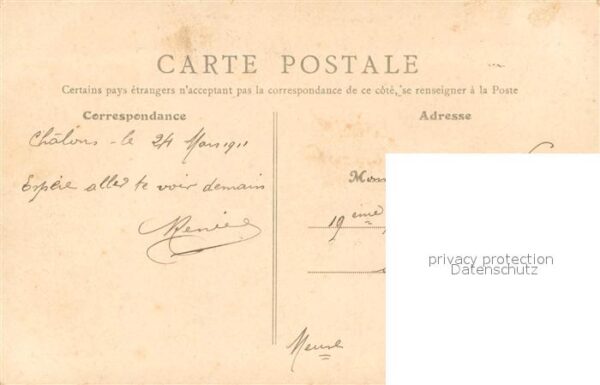 CARTE POSTALE
Certains pays étrangers n'acceptant pas la correspondance de ce côté, se renseigner à la Poste
Correspondance
Adresse
Châlons - le 24 Mars 1911
Espère aller te voir demain
M
19 ème
Meuse
privacy protection
Datenschutz